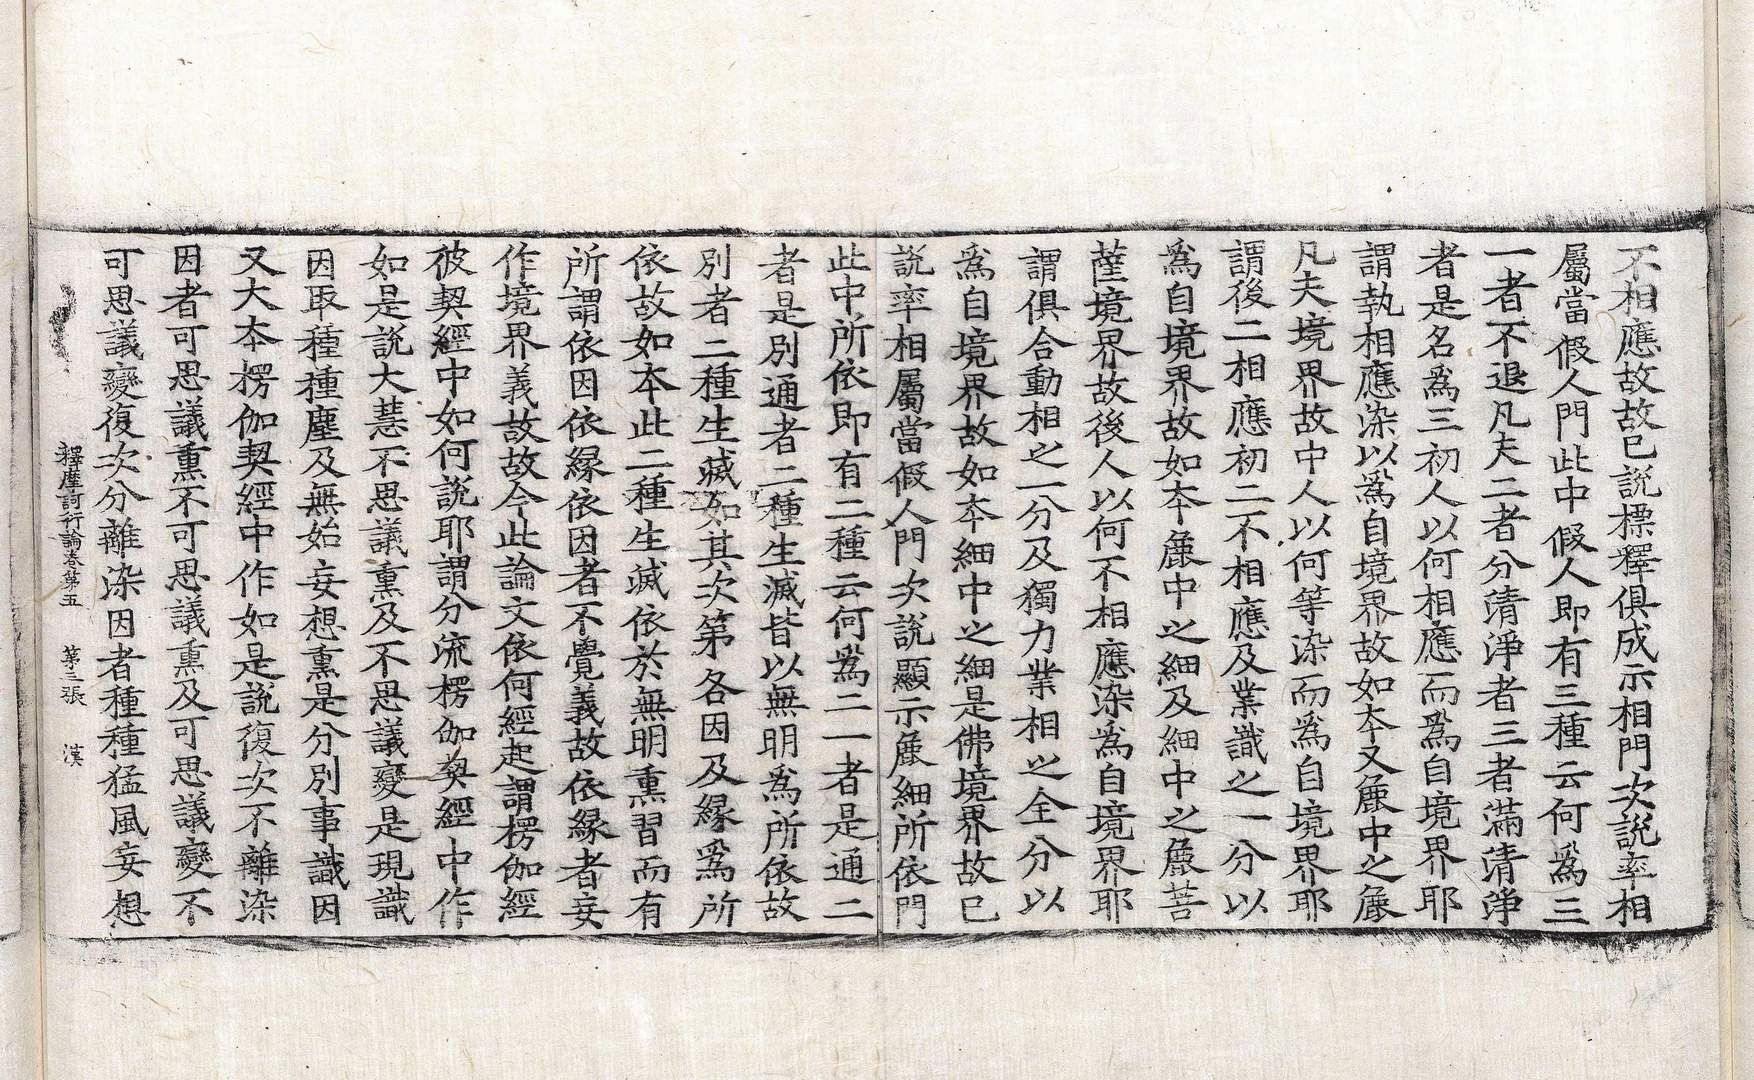 不相應故故已說標釋俱成示相門次說率相
屬當假人門此中假人即有三種云何爲三
一者不退凡夫二者分清淨者三者滿清淨
者是名爲三初人以何相應而爲自境界耶
謂執相應染以爲自境界故如本又麁中之麁
凡夫境界故中人以何等染而爲自境界耶
謂後二相應初二不相應及業識之一分以
爲自境界故如本麁中之細及細中之麁菩
薩境界故後人以何不相應染爲自境界耶
謂俱合動相之一分及獨力業相之全分以
爲自境界故如本細中之細是佛境界故已
說率相屬當假人門次說顯示麁細所依門
此中所依即有二種云何爲二一者是通二
者是別通者二種生滅皆以無明爲所依故
別者二種生滅如其次第各因及緣爲所
依故如本此二種生滅依於無明熏習而有
所謂依因依緣依因者不覺義故依緣者妄
作境界義故故今此論文依何經起謂楞伽經
彼契經中如何說耶謂分流楞伽契經中作
如是說大慧不思議熏及不思議變是現識
因取種種塵及無始妄想熏是分別事識因
又大本楞伽契經中作如是說復次不離染
因者可思議熏不可思議熏及可思議變不
可思議變復次分離染因者種種猛風妄想
釋摩訶衍論卷第五　第三張　漢